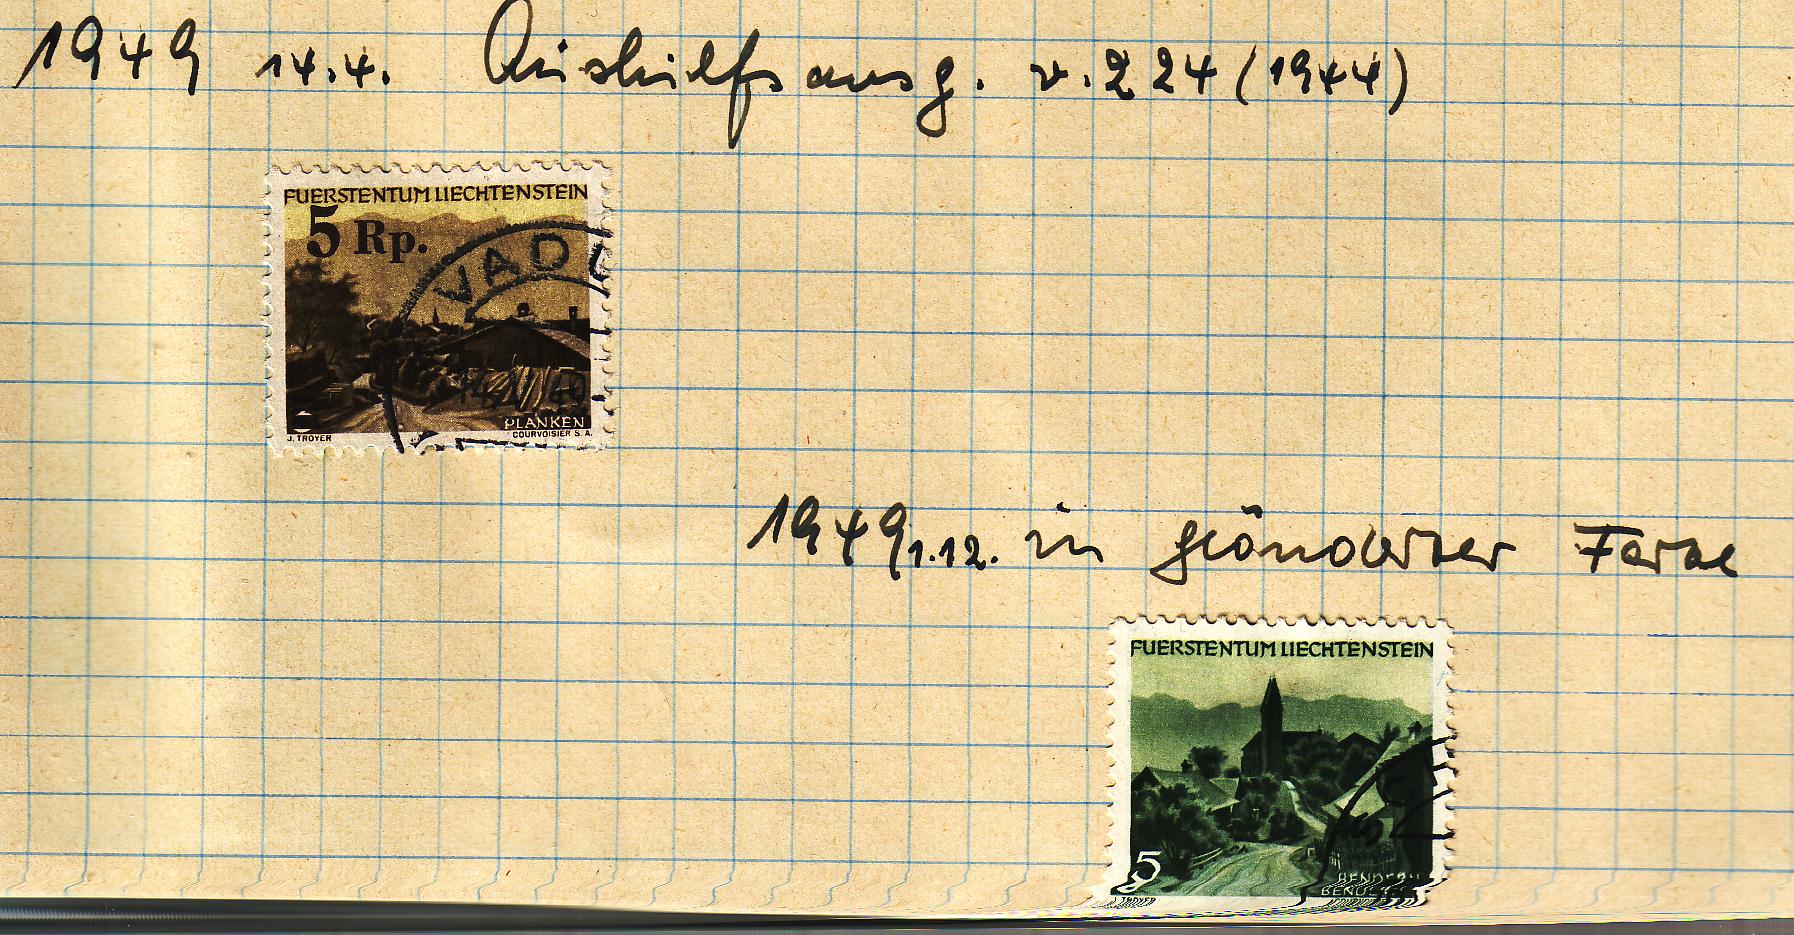 1949 14.4. Aushilfsausg. v. 224 (1944)
FUERSTENTUM LIECHTENSTEIN
5 Rp.
VADU
PLANKEN
J. TROYER
COURVOISIER S. A.
1949 1.12. in geänderter Farbe
FUERSTENTUM LIECHTENSTEIN
5
BENDERN
BENDE
TROYER